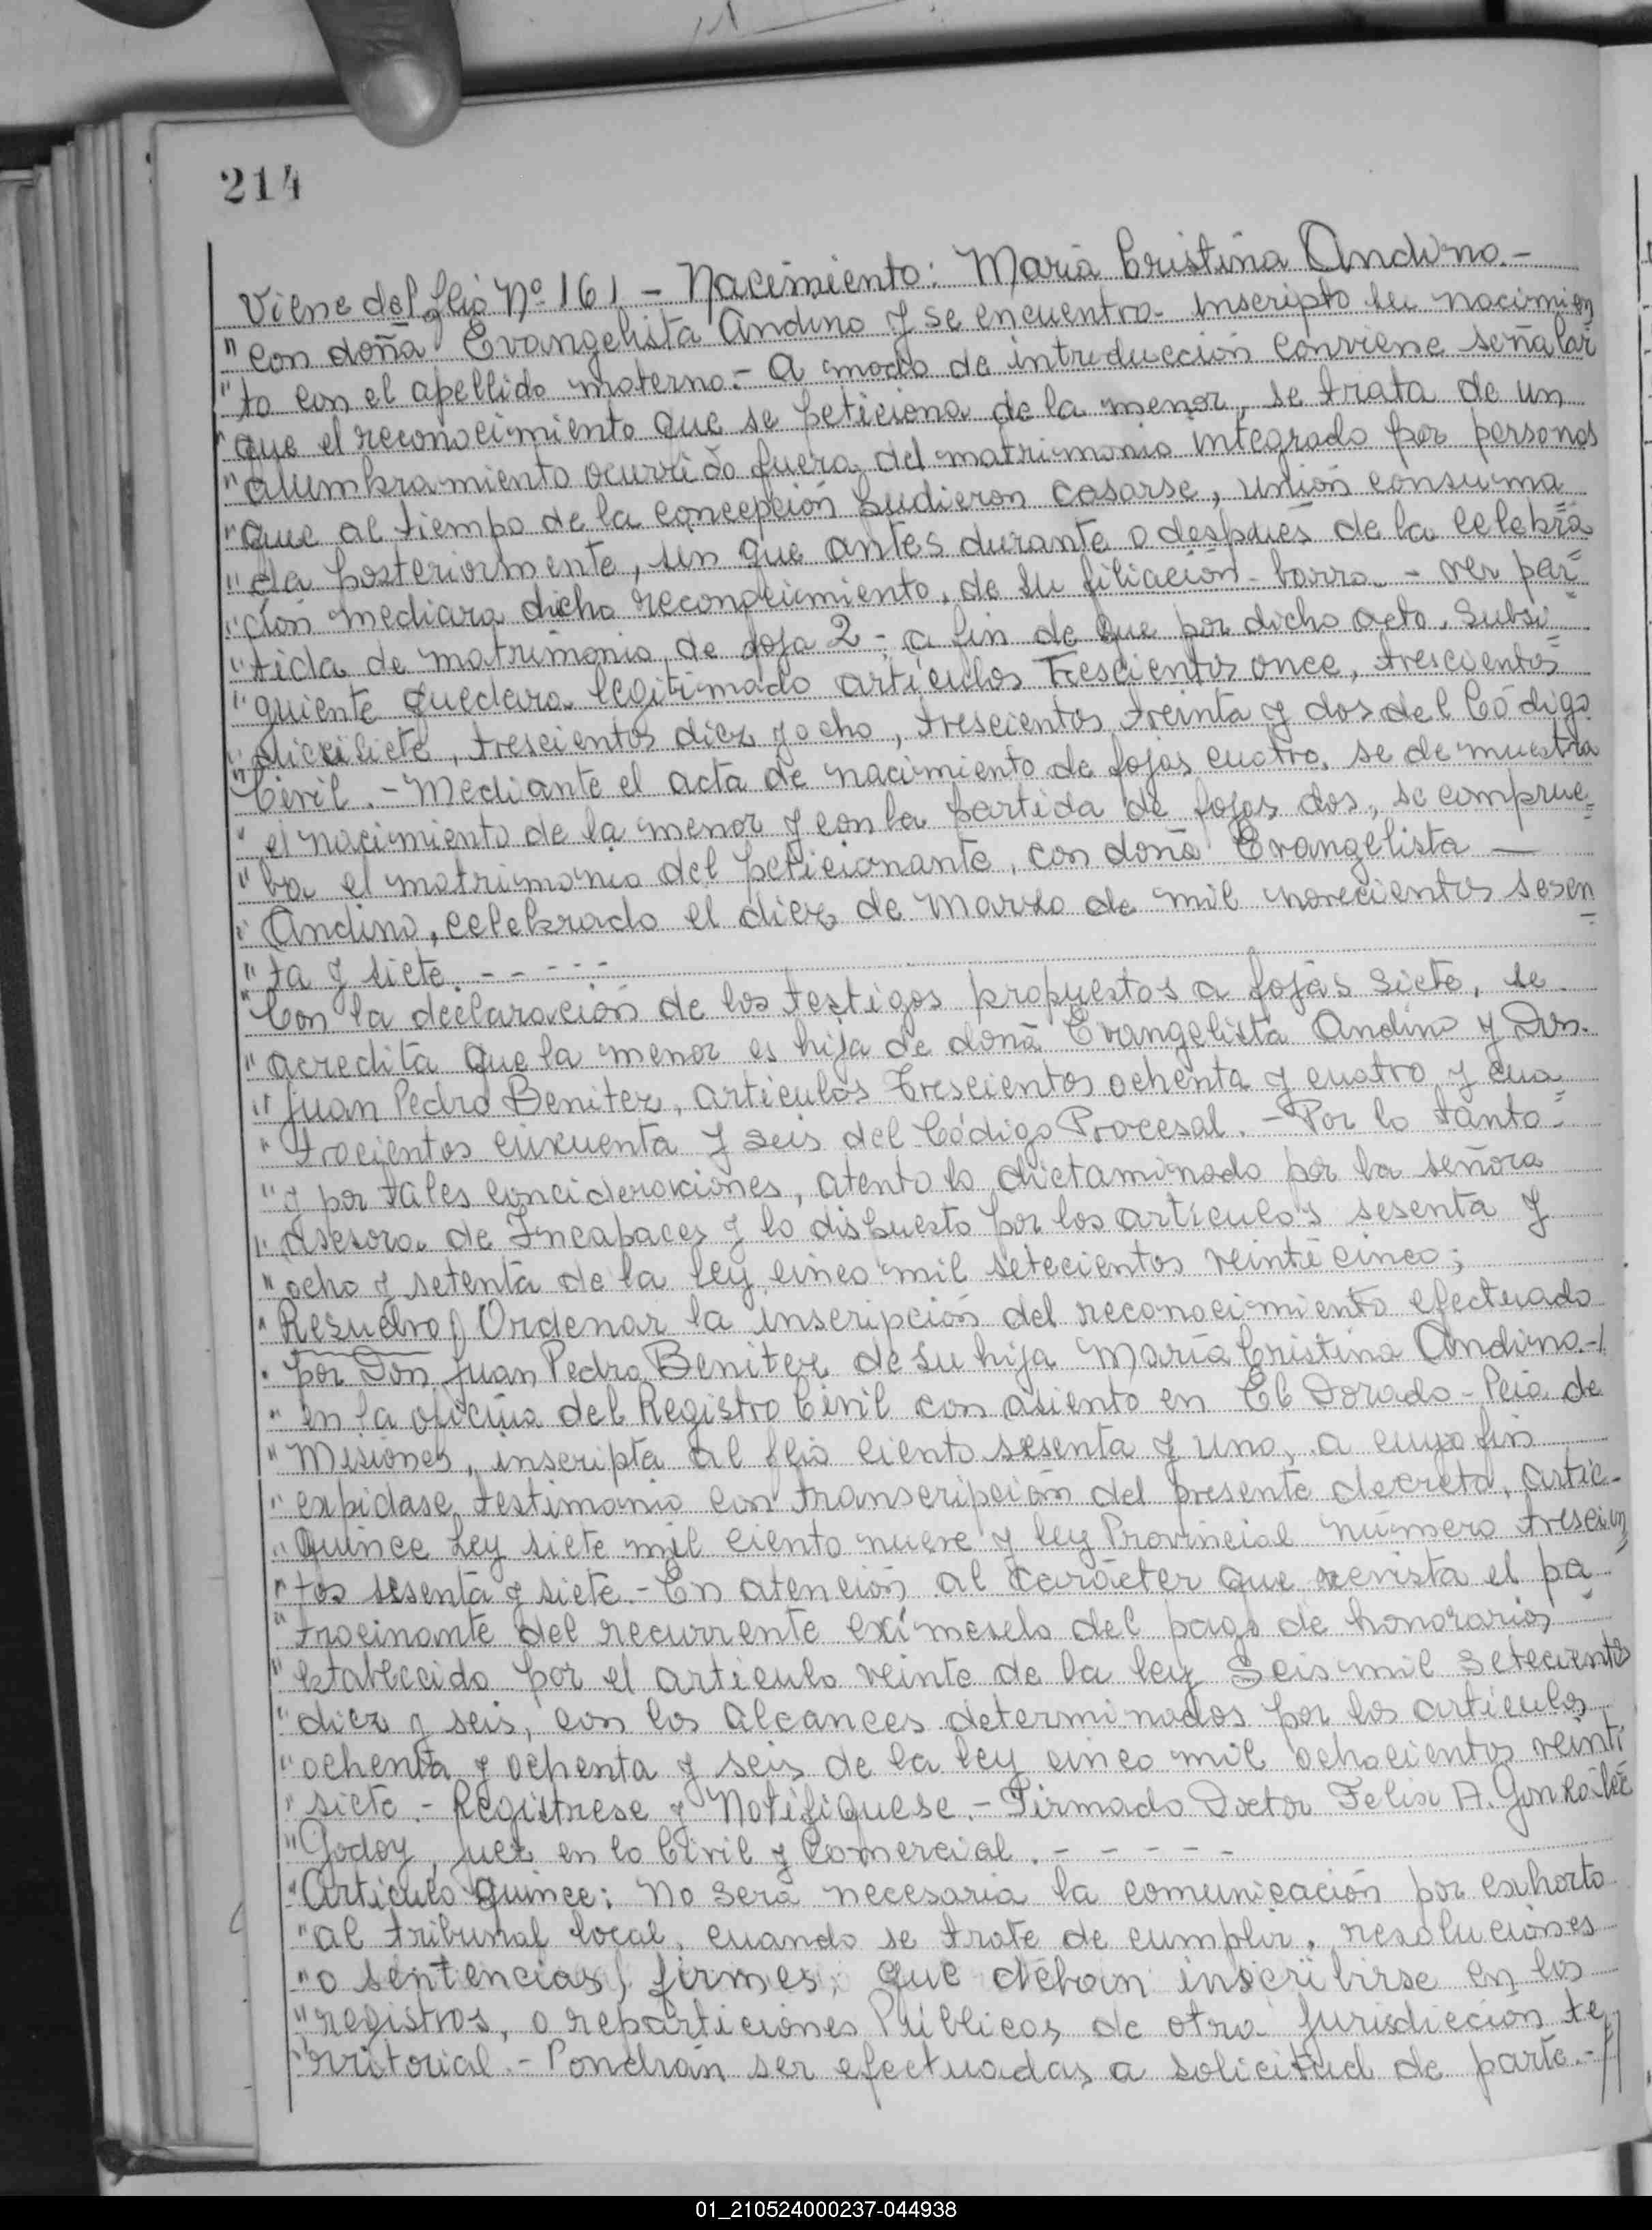 214
Viene del flio Nº 161 - Nacimiento: Maria Cristina Andino.-
"con doña Evangelista Andino y se encuentra inscripto su nacimien
"to con el apellido materno.- A modo de introducción conviene señalar
"que el reconocimiento que se peticiona de la menor, se trata de un
"alumbramiento ocurrido fuera del matrimonio integrado por personas
"que al tiempo de la concepción pudieron casarse, unión consuma
"da posteriormente, sin que antes durante o despues de la celebra
"ción mediara dicho reconocimiento, de su filiación - barra - ver par=
"tida de matrimonio, de foja 2 - a fin de que por dicho acto, subsi=
"guiente quedara legitimado articulos Trescientos once, trescientos
"diecisiete, trescientos diez y ocho, trescientos treinta y dos del Código
"Civil.- Mediante el acta de nacimiento de fojas cuatro, se de muestra
"el nacimiento de la menor y con la partida de fojas dos, se comprue=
"ba el matrimonio del peticionante, con doña Evangelista —
"Andino, celebrado el diez de Marzo de mil novecientos sesen
"ta y siete.- - - - -
"Con la declaración de los testigos propuestos a fojas siete, se
"acredita que la menor es hija de doña Evangelista Andino y Dn.
"Juan Pedro Benitez, articulos Trescientos ochenta y cuatro y cua=
"trocientos cincuenta y seis del Código Procesal.- Por lo tanto
"y por tales concideraciones, atento lo dictaminado por la señora
"Asesora de Incapaces y lo dispuesto por los artículos sesenta y
"ocho y setenta de la ley cinco mil setecientos veinticinco;
"Resuelvo Ordenar la inscripción del reconocimiento efectuado
"por Don Juan Pedro Benitez de su hija María Cristina Andino.-
"en la oficina del Registro Civil con asiento en El Dorado - Pcia de
"Misiones, inscripta al flio ciento sesenta y uno, a cuyo fin
"expidase testimonio con transcripción del presente decreto, artic-
"Quince Ley siete mil ciento nueve y ley Provincial número trescien
"tos sesenta y siete.- En atención al carácter que revista el pa-
"trocinante del recurrente exímeselo del pago de honorarios,
"establecido por el artículo veinte de la ley Seis mil setecientos
"diez y seis, con los alcances determinados por los artículos
"ochenta y ochenta y seis de la ley cinco mil ochocientos veinti
"siete.- Registrese y Notifiquese.- Firmado Doctor Felix A. Gonzalez
"Godoy, juez en lo Civil y Comercial.- - - - - -
"Articulo quince: No será necesaria la comunicación por exhorto
"al tribunal local, cuando se trate de cumplir, resoluciones
"o sentencias, firmes, que deban inscribirse en los
"registros, o reparticiones Públicos de otra Jurisdiccion te
"rritorial.- Pondrán ser efectuadas a solicitud de parte.-
01_210524000237-044938